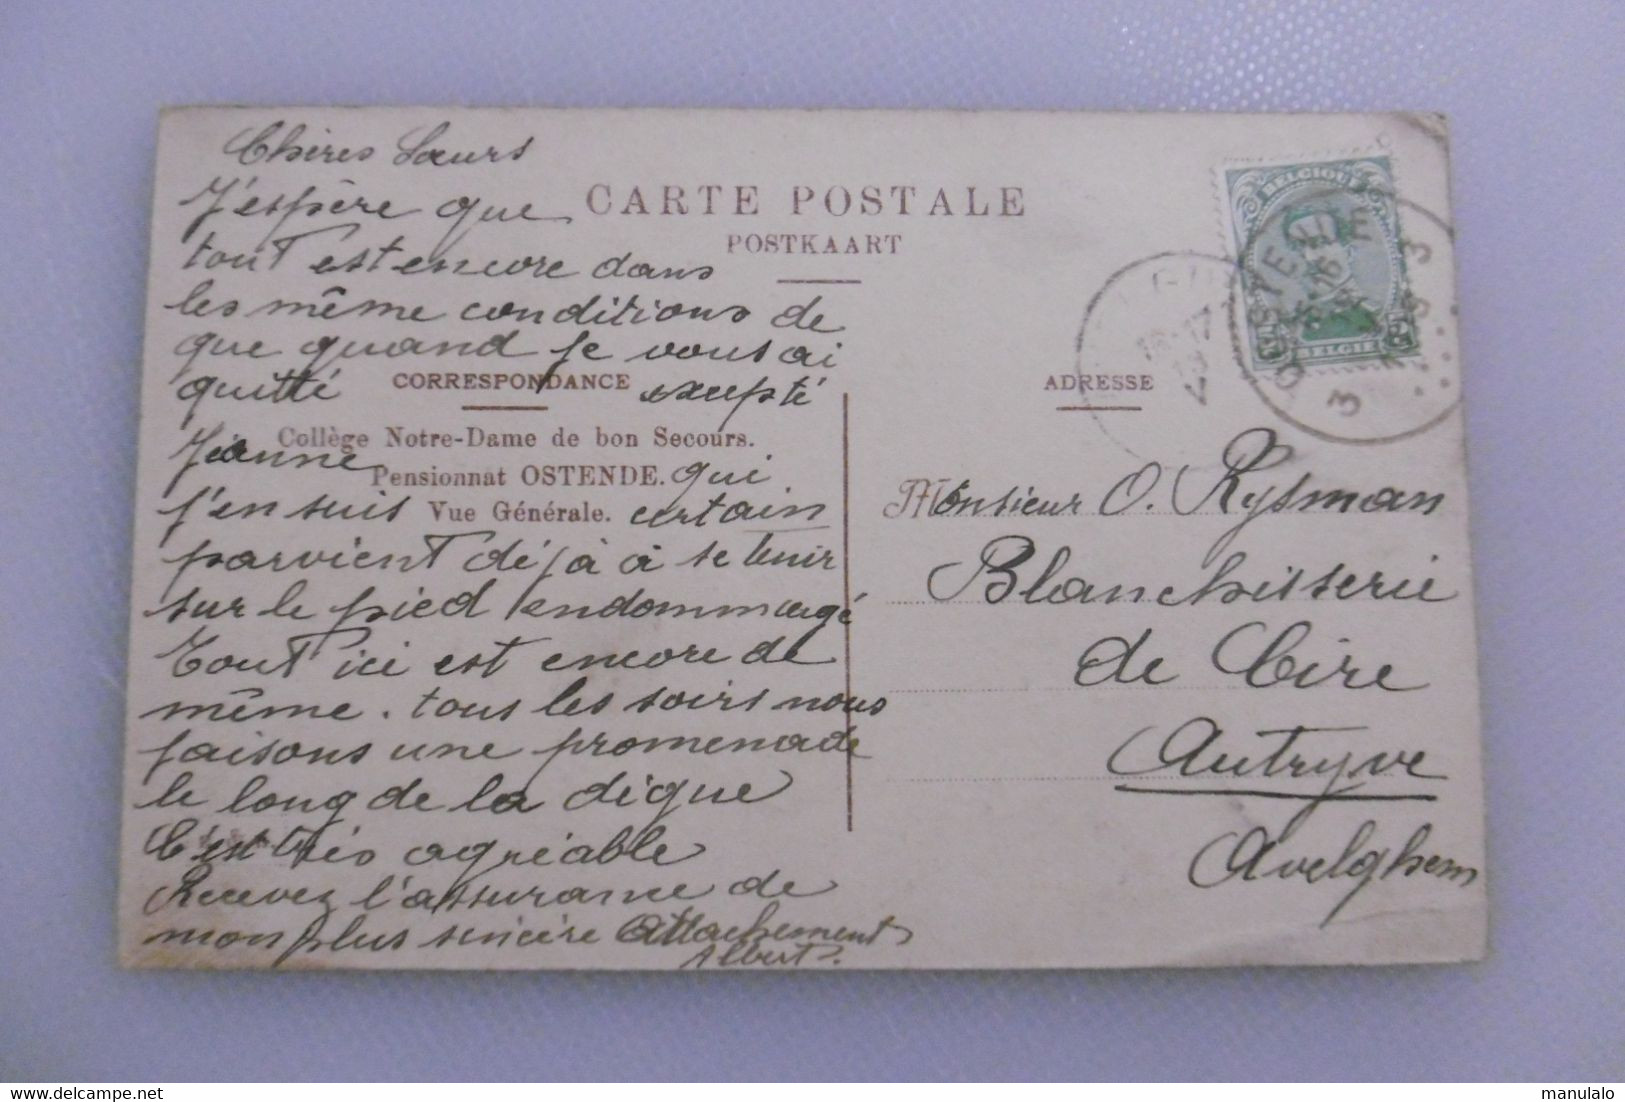 Chères Sœurs
J'espère que
tout est encore dans
les même conditions de
que quand je vous ai
quitté excepté
Jeanne qui
j'en suis certain
parvient déjà à se tenir
sur le pied endommagé
Tout ici est encore de
même. tous les soirs nous
faisons une promenade
le long de la digue
C'est très agréable
Recevez l'assurance de
mon plus sincère attachement
Albert.
CARTE POSTALE
POSTKAART
CORRESPONDANCE
Collège Notre-Dame de bon Secours.
Pensionnat OSTENDE.
Vue Générale.
ADRESSE
BELGIQUE
BELGIË
OOSTENDE
Monsieur O. Rysman
Blanchisserie
de Cire
Autryve
Avelghem
www.delcampe.net
manulalo